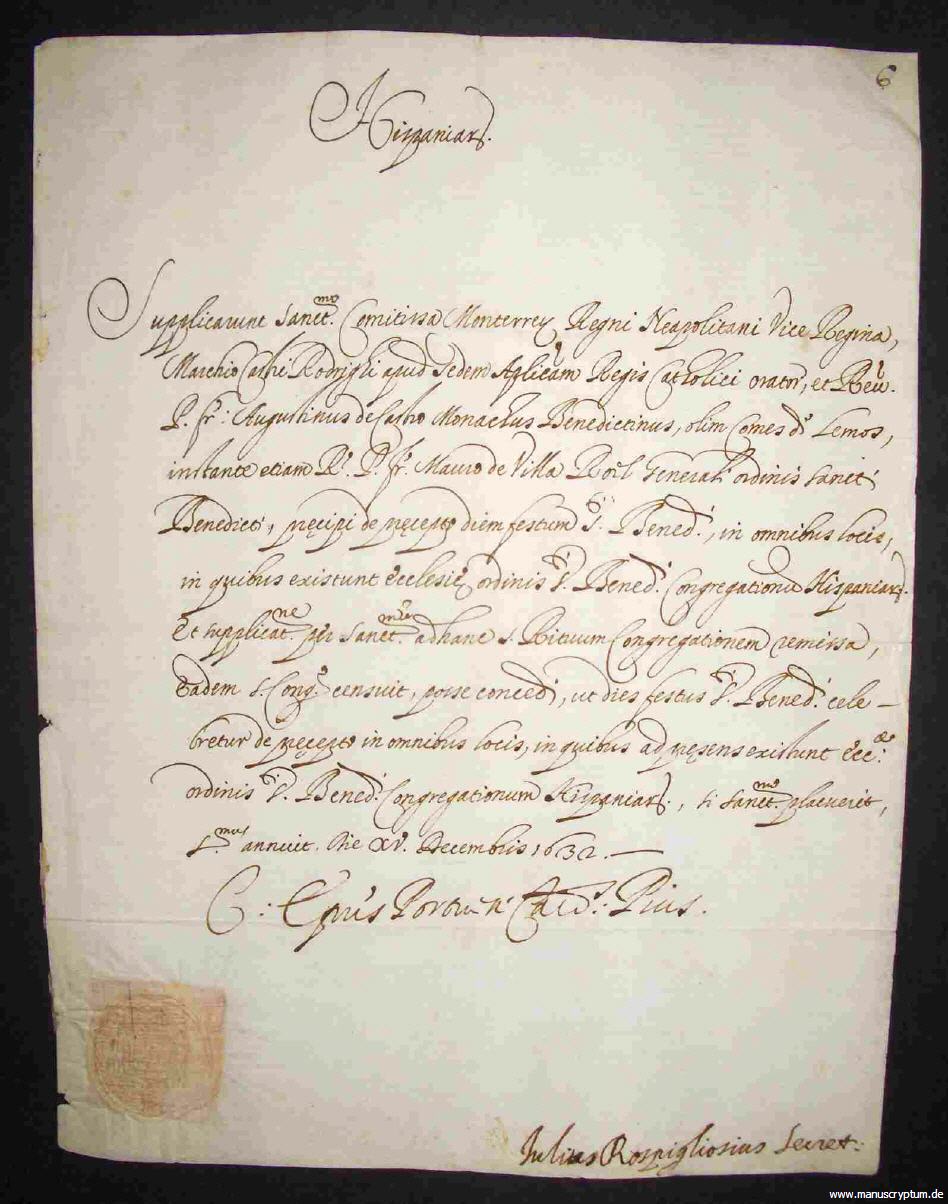 6
Hispaniar.
Supplicarunt Sanct.mo Comitissa Monterrey Regni Neapolitani Vice Regina,
Marchio Castri Rodrighi apud Sedem Aplicam Regis Catholici orator, et Reu.
P. fr: Augustinus de Castro Monachus Benedictinus, olim Comes de Lemos,
instante etiam R. P. fr. Mauro de Villa Generali ordinis Sancti
Benedicti, pręcipi de pręcepto diem festum S.ti Bened., in omnibus locis,
in quibus existunt Ecclesię ordinis S.ti Bened. Congregationum Hispaniar.
Et supplicat.ne per Sanct. ad hanc S. Rituum Congregationem remissa,
Eadem S. Cong. censuit, posse concedi, ut dies festus S.ti Bened. cele-
bretur de pręcepto in omnibus locis, in quibus ad pręsens existunt Ecc.æ
ordinis S.ti Bened. Congregationum Hispaniar., si Sanct.mo placuerit,
S.mus annuit. Die XV. Decembris 1632.—
C: Epus Portuen. Card. Pius.
Iulius Rospigliosius Secret.
www.manuscryptum.de